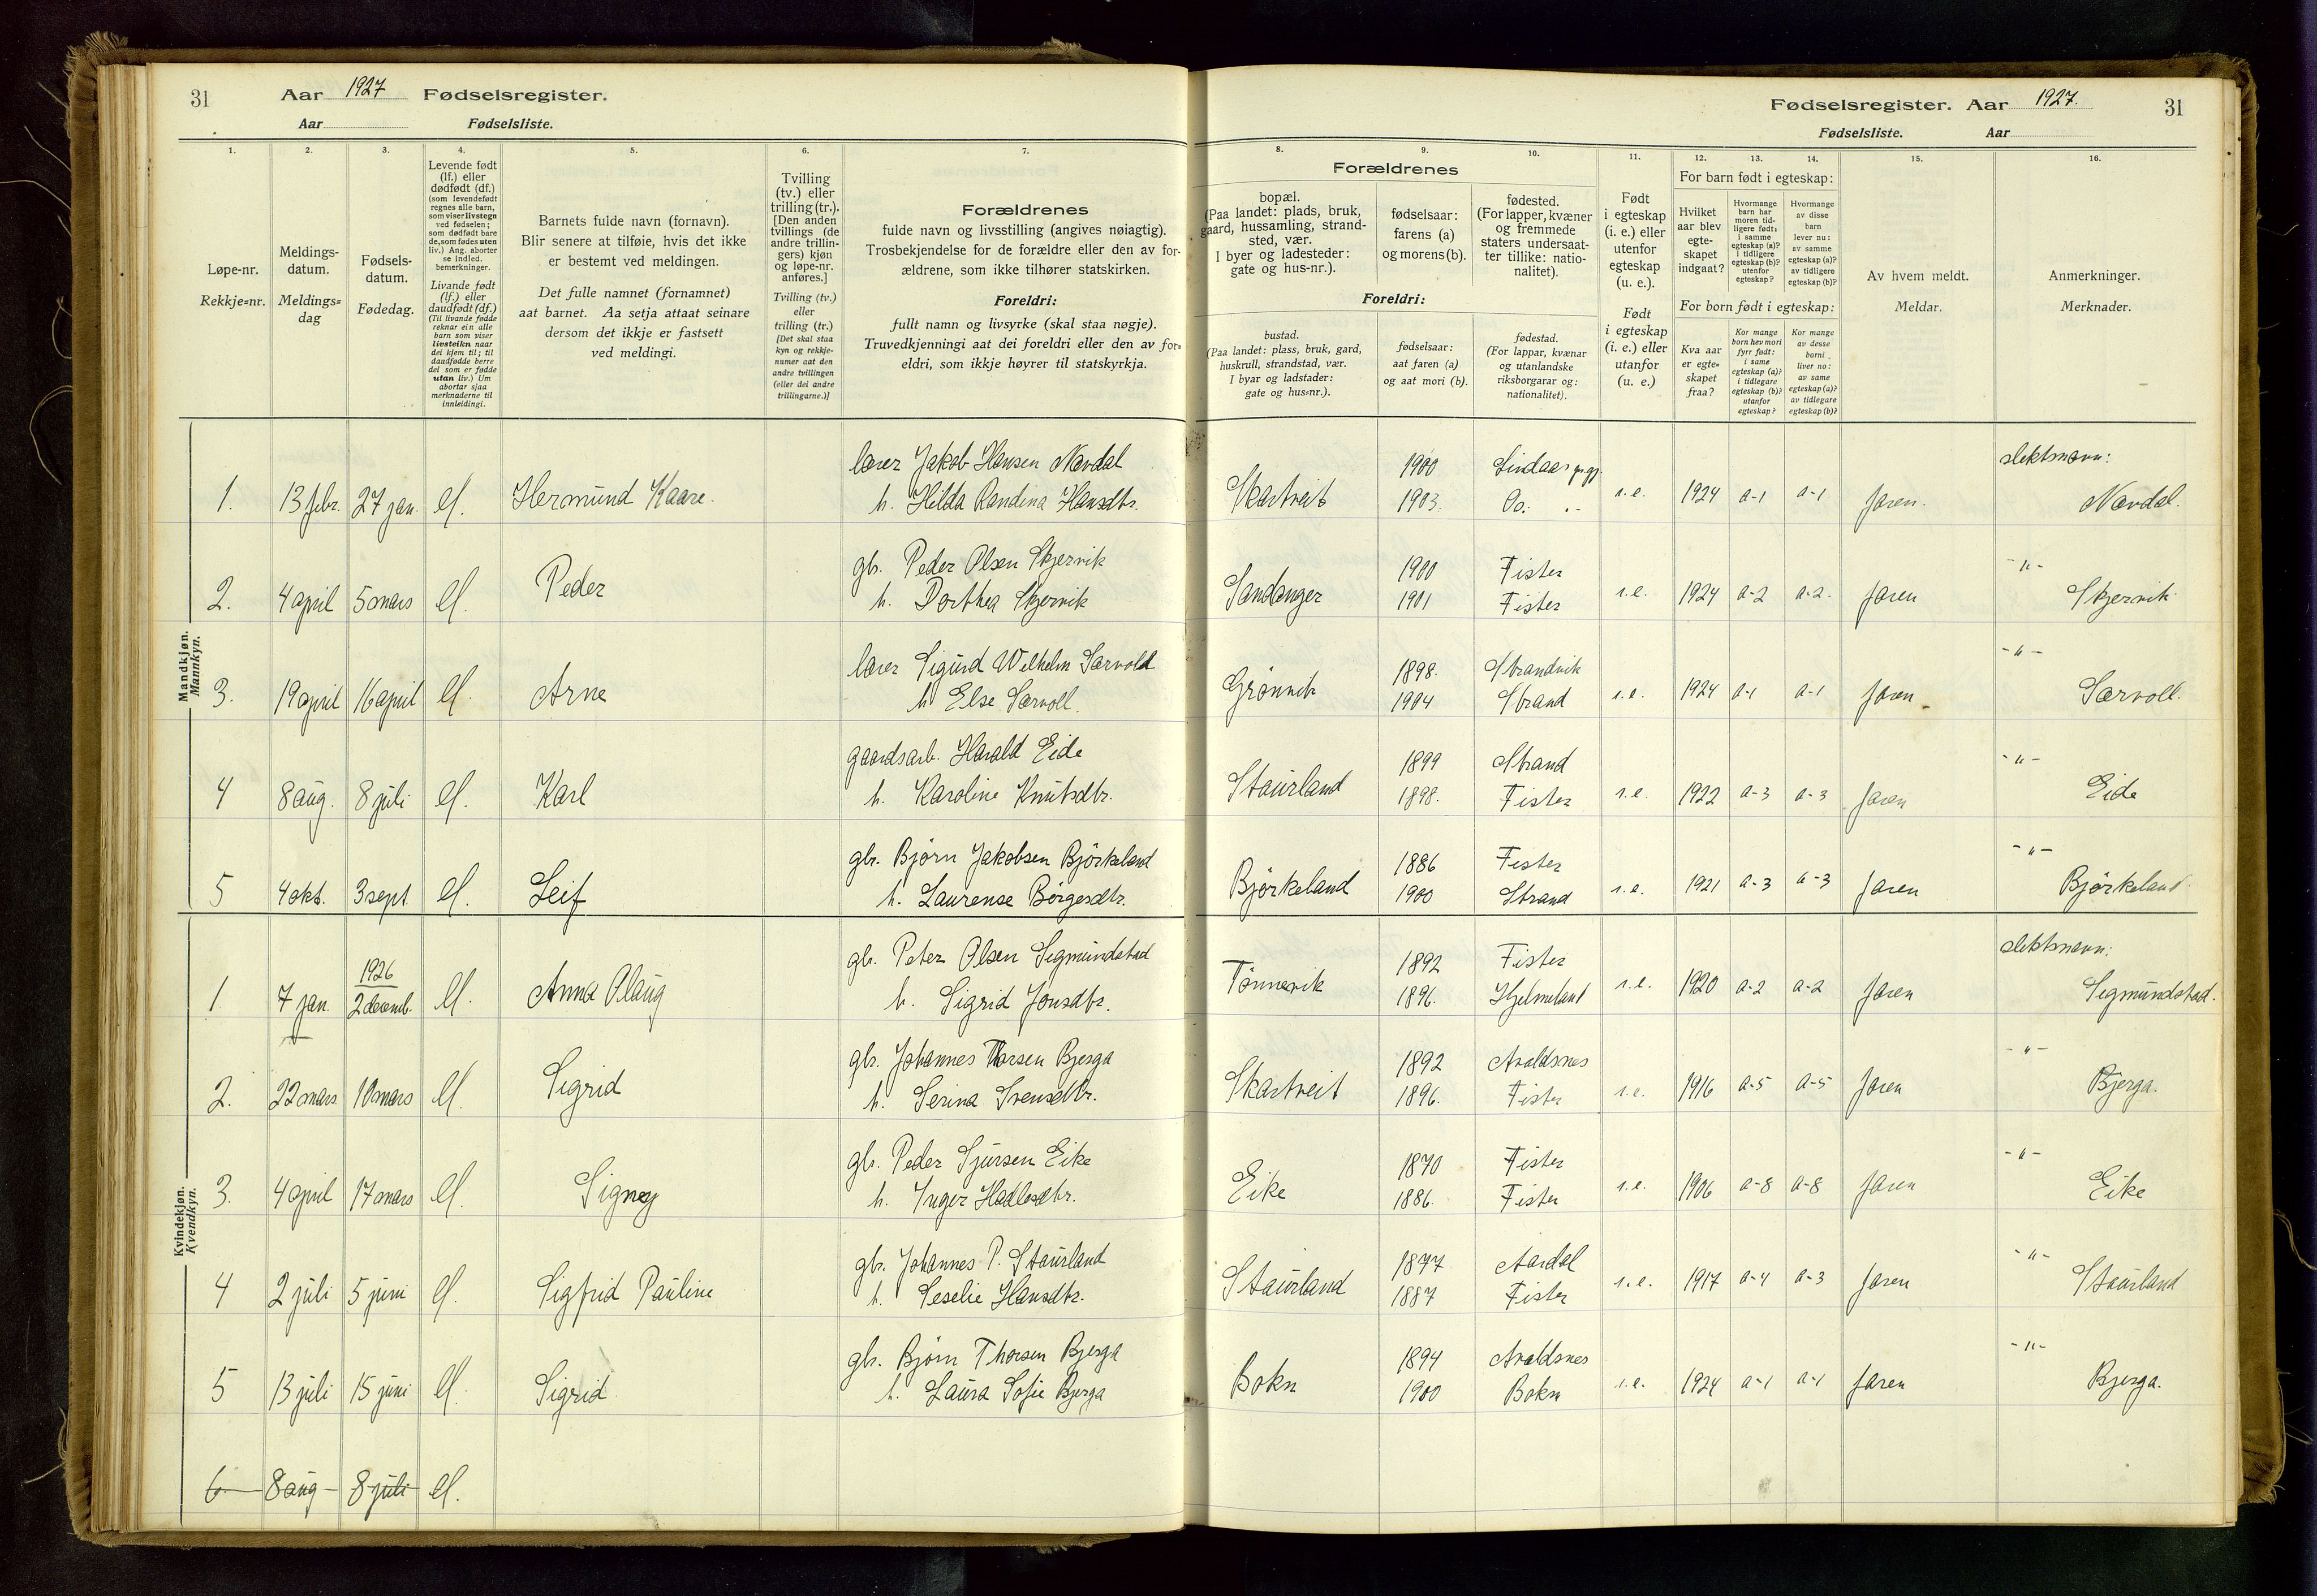 31 Aar 1927 Fødselsregister.
Aar Fødselsliste.
1. 2. 3. 4. 5. 6. 7.
Løpe-nr.
Rekkje=nr.
Meldings-
datum.
Meldings=
dag
Fødsels-
datum.
Fødedag.
Levende født
(lf.) eller
dødfødt (df.)
(som levendefødt
regnes alle barn,
som viser livstegn
ved fødselen;
som dødfødt bare
de, som fødes uten
liv.) Ang. aborter
se indled.
bemerkninger.
Livande født
(lf.) eller
daudfødt (df.)
(Til livande fødde
reknar ein alle
barn som viser
livsteikn naar
dei kjem til; til
daudfødde berre
dei som er fødde
utan liv.) Um
abortar sjaa
merknaderne til
innleidingi.
Barnets fulde navn (fornavn).
Blir senere at tilføie, hvis det ikke
er bestemt ved meldingen.
Det fulle namnet (fornamnet)
aat barnet. Aa setja attaat seinare
dersom det ikkje er fastsett
ved meldingi.
Tvilling
(tv.) eller
trilling (tr.).
[Den anden
tvillings (de
andre trillin-
gers) kjøn
og løpe-nr.
anføres.]
Tvilling (tv.)
eller
trilling (tr.)
[Det skal staa
kyn og rekkje-
numer aat den
andre tvillingen
(eller dei andre
trillingarne.)]
Forældrenes
fulde navn og livsstilling (angives nøiagtig).
Trosbekjendelse for de forældre eller den av for-
ældrene, som ikke tilhører statskirken.
Foreldri:
fullt namn og livsyrke (skal staa nøgje).
Truvedkjenningi aat dei foreldri eller den av for=
eldri, som ikkje høyrer til statskyrkja.
Mandkjøn.
Mannkyn.
lærer Jakob Hansen Nævdal
1. 13 febr. 27 jan. lf. Hermund Kaare. h. Hilda Randina Hansdtr.
gbr. Peder Olsen Skjervik
2. 4 april 5 mars lf. Peder h. Dorthea Skjervik
lærer Sigurd Wilhelm Særvold
3. 19 april 16 april lf. Arne h Else Særvoll.
gaardsarb. Harald Eide
4 8 aug. 8 juli lf. Karl h. Karoline Knutsdtr.
gbr. Bjørn Jakobsen Bjørkeland
5 4 okt. 3 sept. lf. Leif h. Laurense Børgesdtr.
Kvindekjøn.
Kvendkyn.
1926 gbr. Peter Olsen Sigmundstad
1. 7 jan. 2 decemb. lf. Anna Olaug h. Sigrid Jonsdtr.
gbr. Johannes Thorsen Bjerga
2. 22 mars 10 mars lf. Sigrid h. Serina Svensdtr.
gbr. Peder Sjursen Eike
3. 4 april 17 mars lf. Signy h. Inger Hadlesdtr.
gbr. Johannes P. Staurland
4 2 juli 5 juni lf. Sigfrid Pauline h. Seselie Hansdtr.
gbr. Bjørn Thorsen Bjerga
5 13 juli 15 juni lf. Sigrid h. Laura Sofie Bjerga
6 8 aug 8 juli lf.
Fødselsregister. Aar 1927. 31
Fødselsliste. Aar
8. 9. 10. 11. 12. 13. 14. 15. 16.
Forældrenes
bopæl.
(Paa landet: plads, bruk,
gaard, hussamling, strand-
sted, vær.
I byer og ladesteder:
gate og hus-nr.).
fødselsaar:
farens (a)
og morens (b).
fødested.
(For lapper, kvæner
og fremmede
staters undersaat-
ter tillike: natio-
nalitet).
Foreldri:
bustad.
(Paa landet: plass, bruk, gard,
huskrull, strandstad, vær.
I byar og ladstader:
gate og hus=nr.).
fødselsaar:
aat faren (a)
og aat mori (b).
fødestad.
(For lappar, kvænar
og utanlandske
riksborgarar og:
nationalitet).
Født
i egteskap
(i. e.) eller
utenfor
egteskap
(u. e.).
Født
i egteskap
(i. e.) eller
utanfor
(u. e.)
For barn født i egteskap:
Hvilket
aar blev
egte-
skapet
indgaat?
Hvormange
barn har
moren tid-
ligere født:
i samme
egteskap (a)?
i tidligere
egteskap (b)?
utenfor
egteskap?
Hvormange
av disse
barn
lever nu:
av samme
egteskap (a)?
av tidligere
egteskap (b)?
For born født i egteskap:
Kva aar
er egte=
skapet
fraa?
Kor mange
born hev mori
fyrr født:
i same
egteskap (a)?
i tidlegare
egteskap (b)?
utanfor
egteskap?
Kor mange
av desse
borni
liver no:
av same
egteskap (a)?
av tidlegare
egteskap (b)?
Av hvem meldt.
Meldar.
Anmerkninger.
Merknader.
1900 Lindaas slektsnavn:
Skartveit 1903. Do. 1924 a-1 a-1 faren. Nævdal.
1900 Fister -"-
Sandanger 1901 Fister i.e. 1924 a-2 a-2. faren Skjervik
1898. Strandvik -"-
Grønvik 1904 Strand i.e. 1924 a-1 a-1 faren Særvoll.
1899 Strand -"-
Staurland 1898. Fister i.e. 1922 a-3 a-3 faren Eide
1886 Fister -"-
Bjørkeland 1900 Strand i.e. 1921 a-3 a-3 faren Bjørkeland
1892 Fister slektsnavn:
Tønnevik 1896. Hjelmeland i.e. 1920 a-2 a-2 faren Sigmundstad.
1892 Avaldsnes -"-
Skartveit 1896. Fister i.e. 1916 a-5 a-5 faren Bjerga.
1870 Fister -"-
Eike 1886. Fister i.e. 1906 a-8 a-8 faren Eike
1877 Aardal -"-
Staurland 1887 Fister i.e. 1917 a-4 a-3 faren Staurland
1894 Avaldsnes -"-
Bokn 1900 Bokn i.e. 1924 a-1 a-1 faren Bjerga.